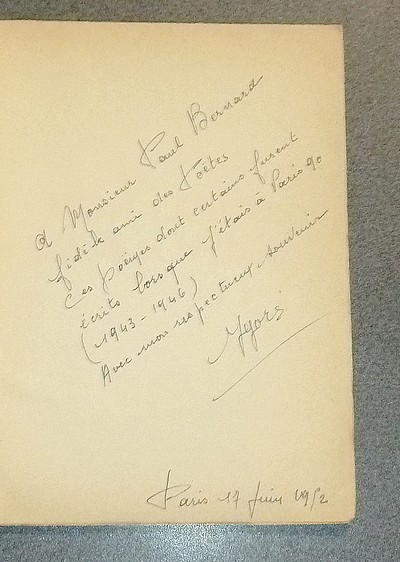 A Monsieur Paul Bernard
fidèle ami des Poëtes
Ces Poëmes dont certains furent
écrits lorsque j'étais à Paris 90
(1943-1946)
Avec mon respectueux souvenir
Paris 17 Juin 1952